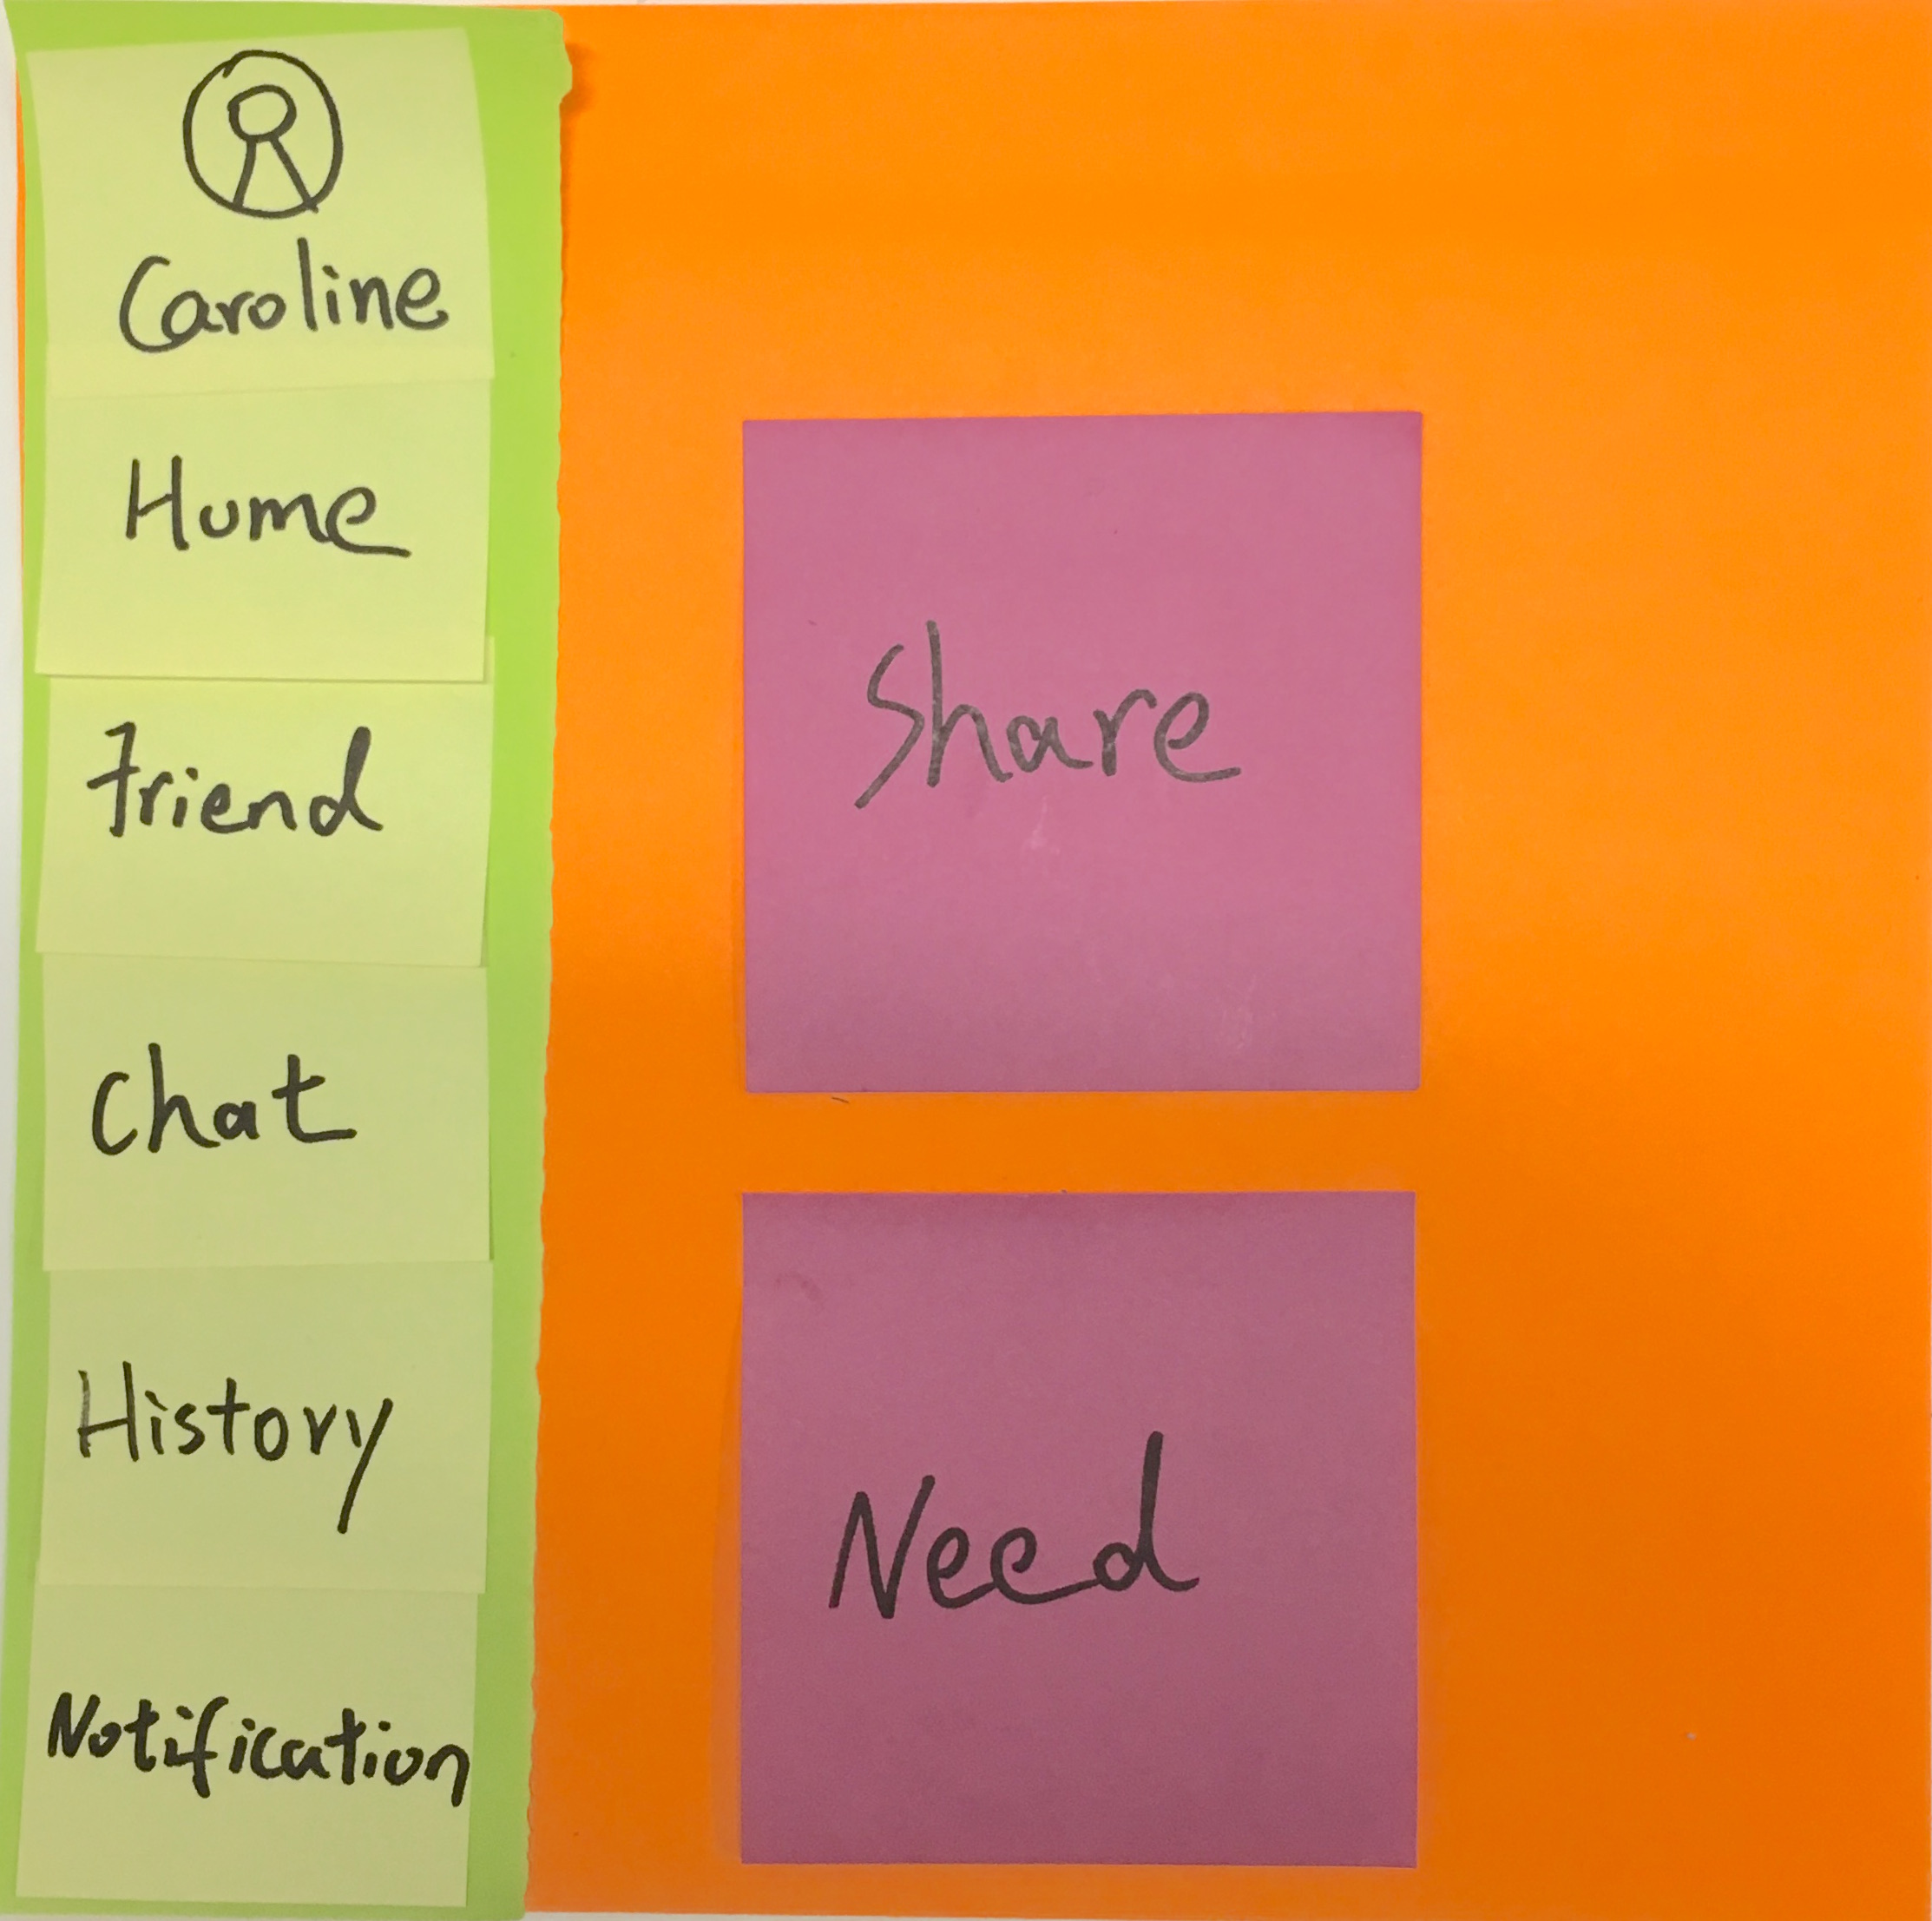 Caroline
Home
Friend
Chat
History
Notification
Share
Need